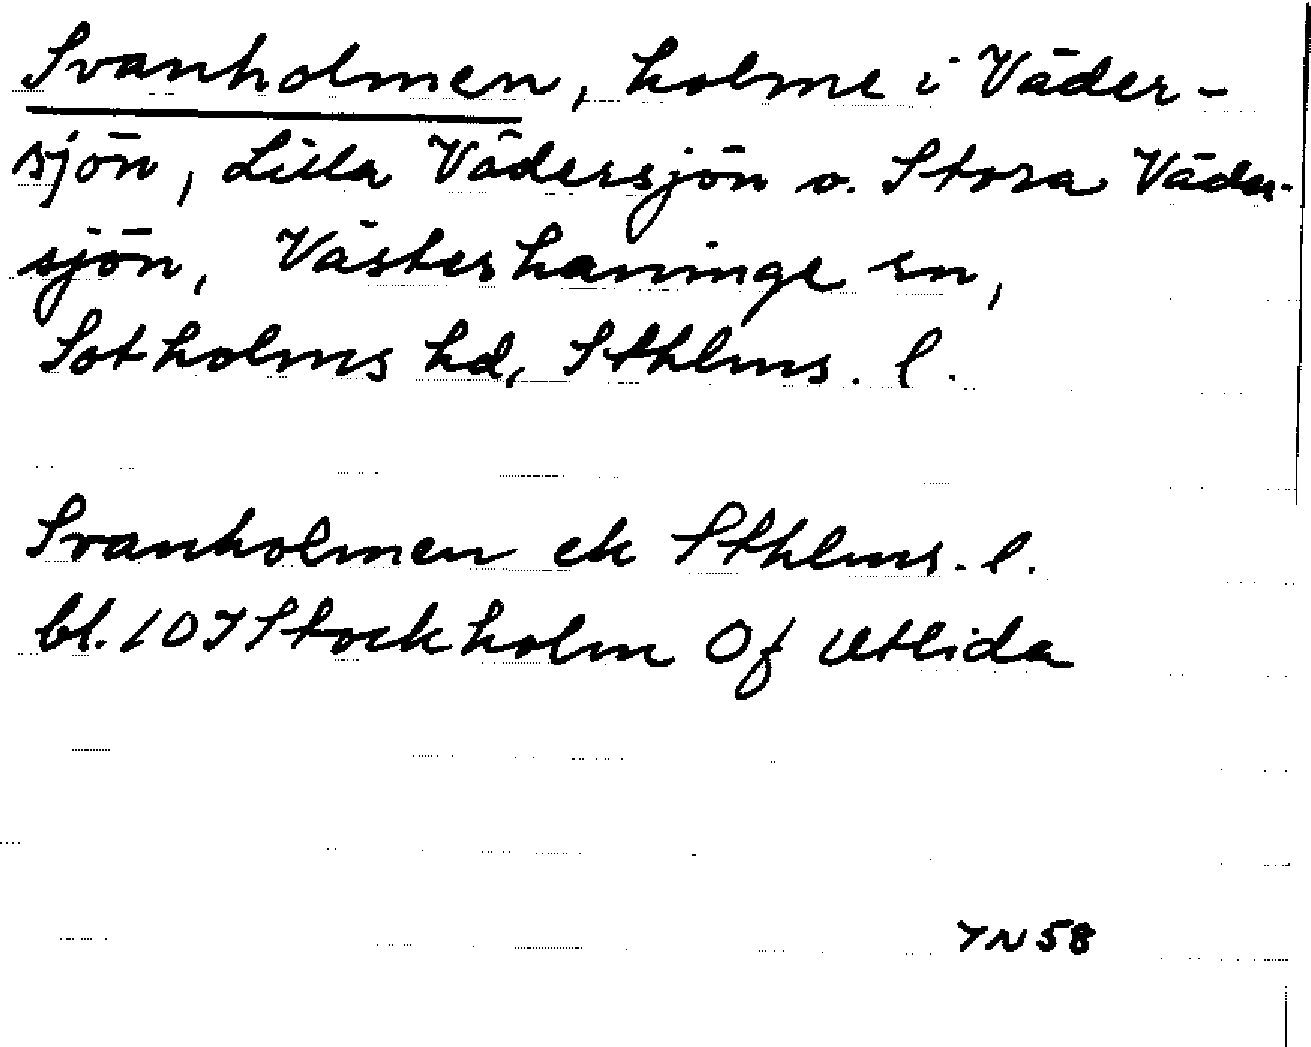 Svanholmen, holme i Väder-
sjön, Lilla Vädersjön o. Stora Väder-
sjön, Västerhaninge sn,
Sotholms hd, Sthlms. l.
Svanholmen ek Sthlms. l.
bl. 10 I Stockholm Of Utlida
IN 58